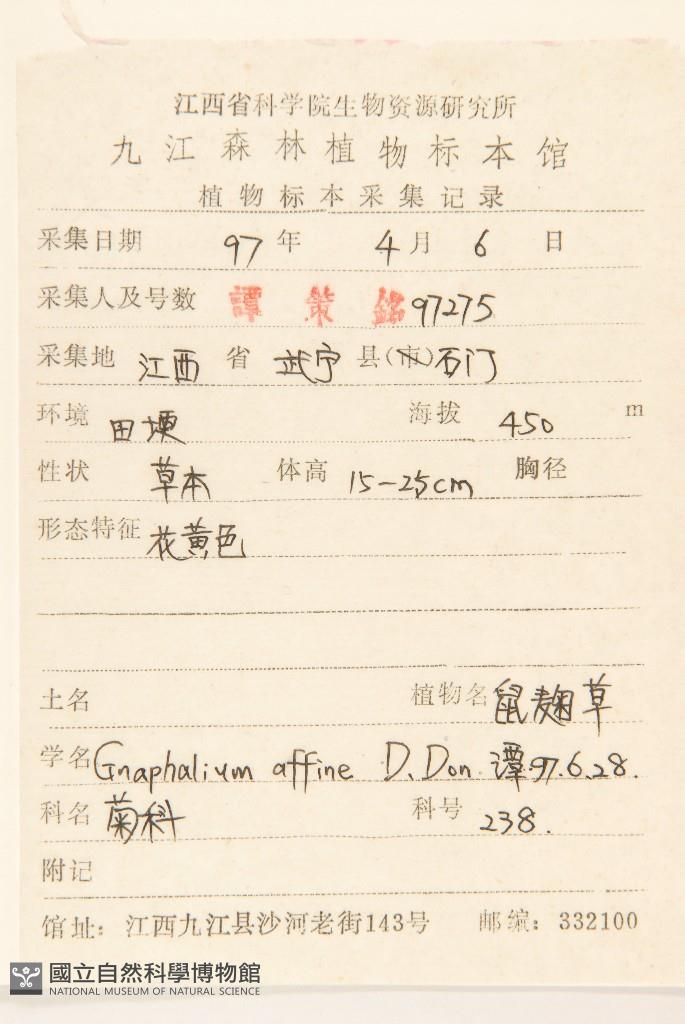 江西省科学院生物资源研究所
九江森林植物标本馆
植物标本采集记录
采集日期 97 年 4 月 6 日
采集人及号数 譚策銘 97275
采集地 江西 省 武宁 县(市)石门
环境 田埂 海拔 450 m
性状 草本 体高 15-25cm 胸径
形态特征 花黄色
土名 植物名 鼠麹草
学名 Gnaphalium affine D. Don 譚.97.6.28.
科名 菊科 科号 238.
附记
馆址: 江西九江县沙河老街143号 邮编: 332100
國立自然科學博物館
NATIONAL MUSEUM OF NATURAL SCIENCE